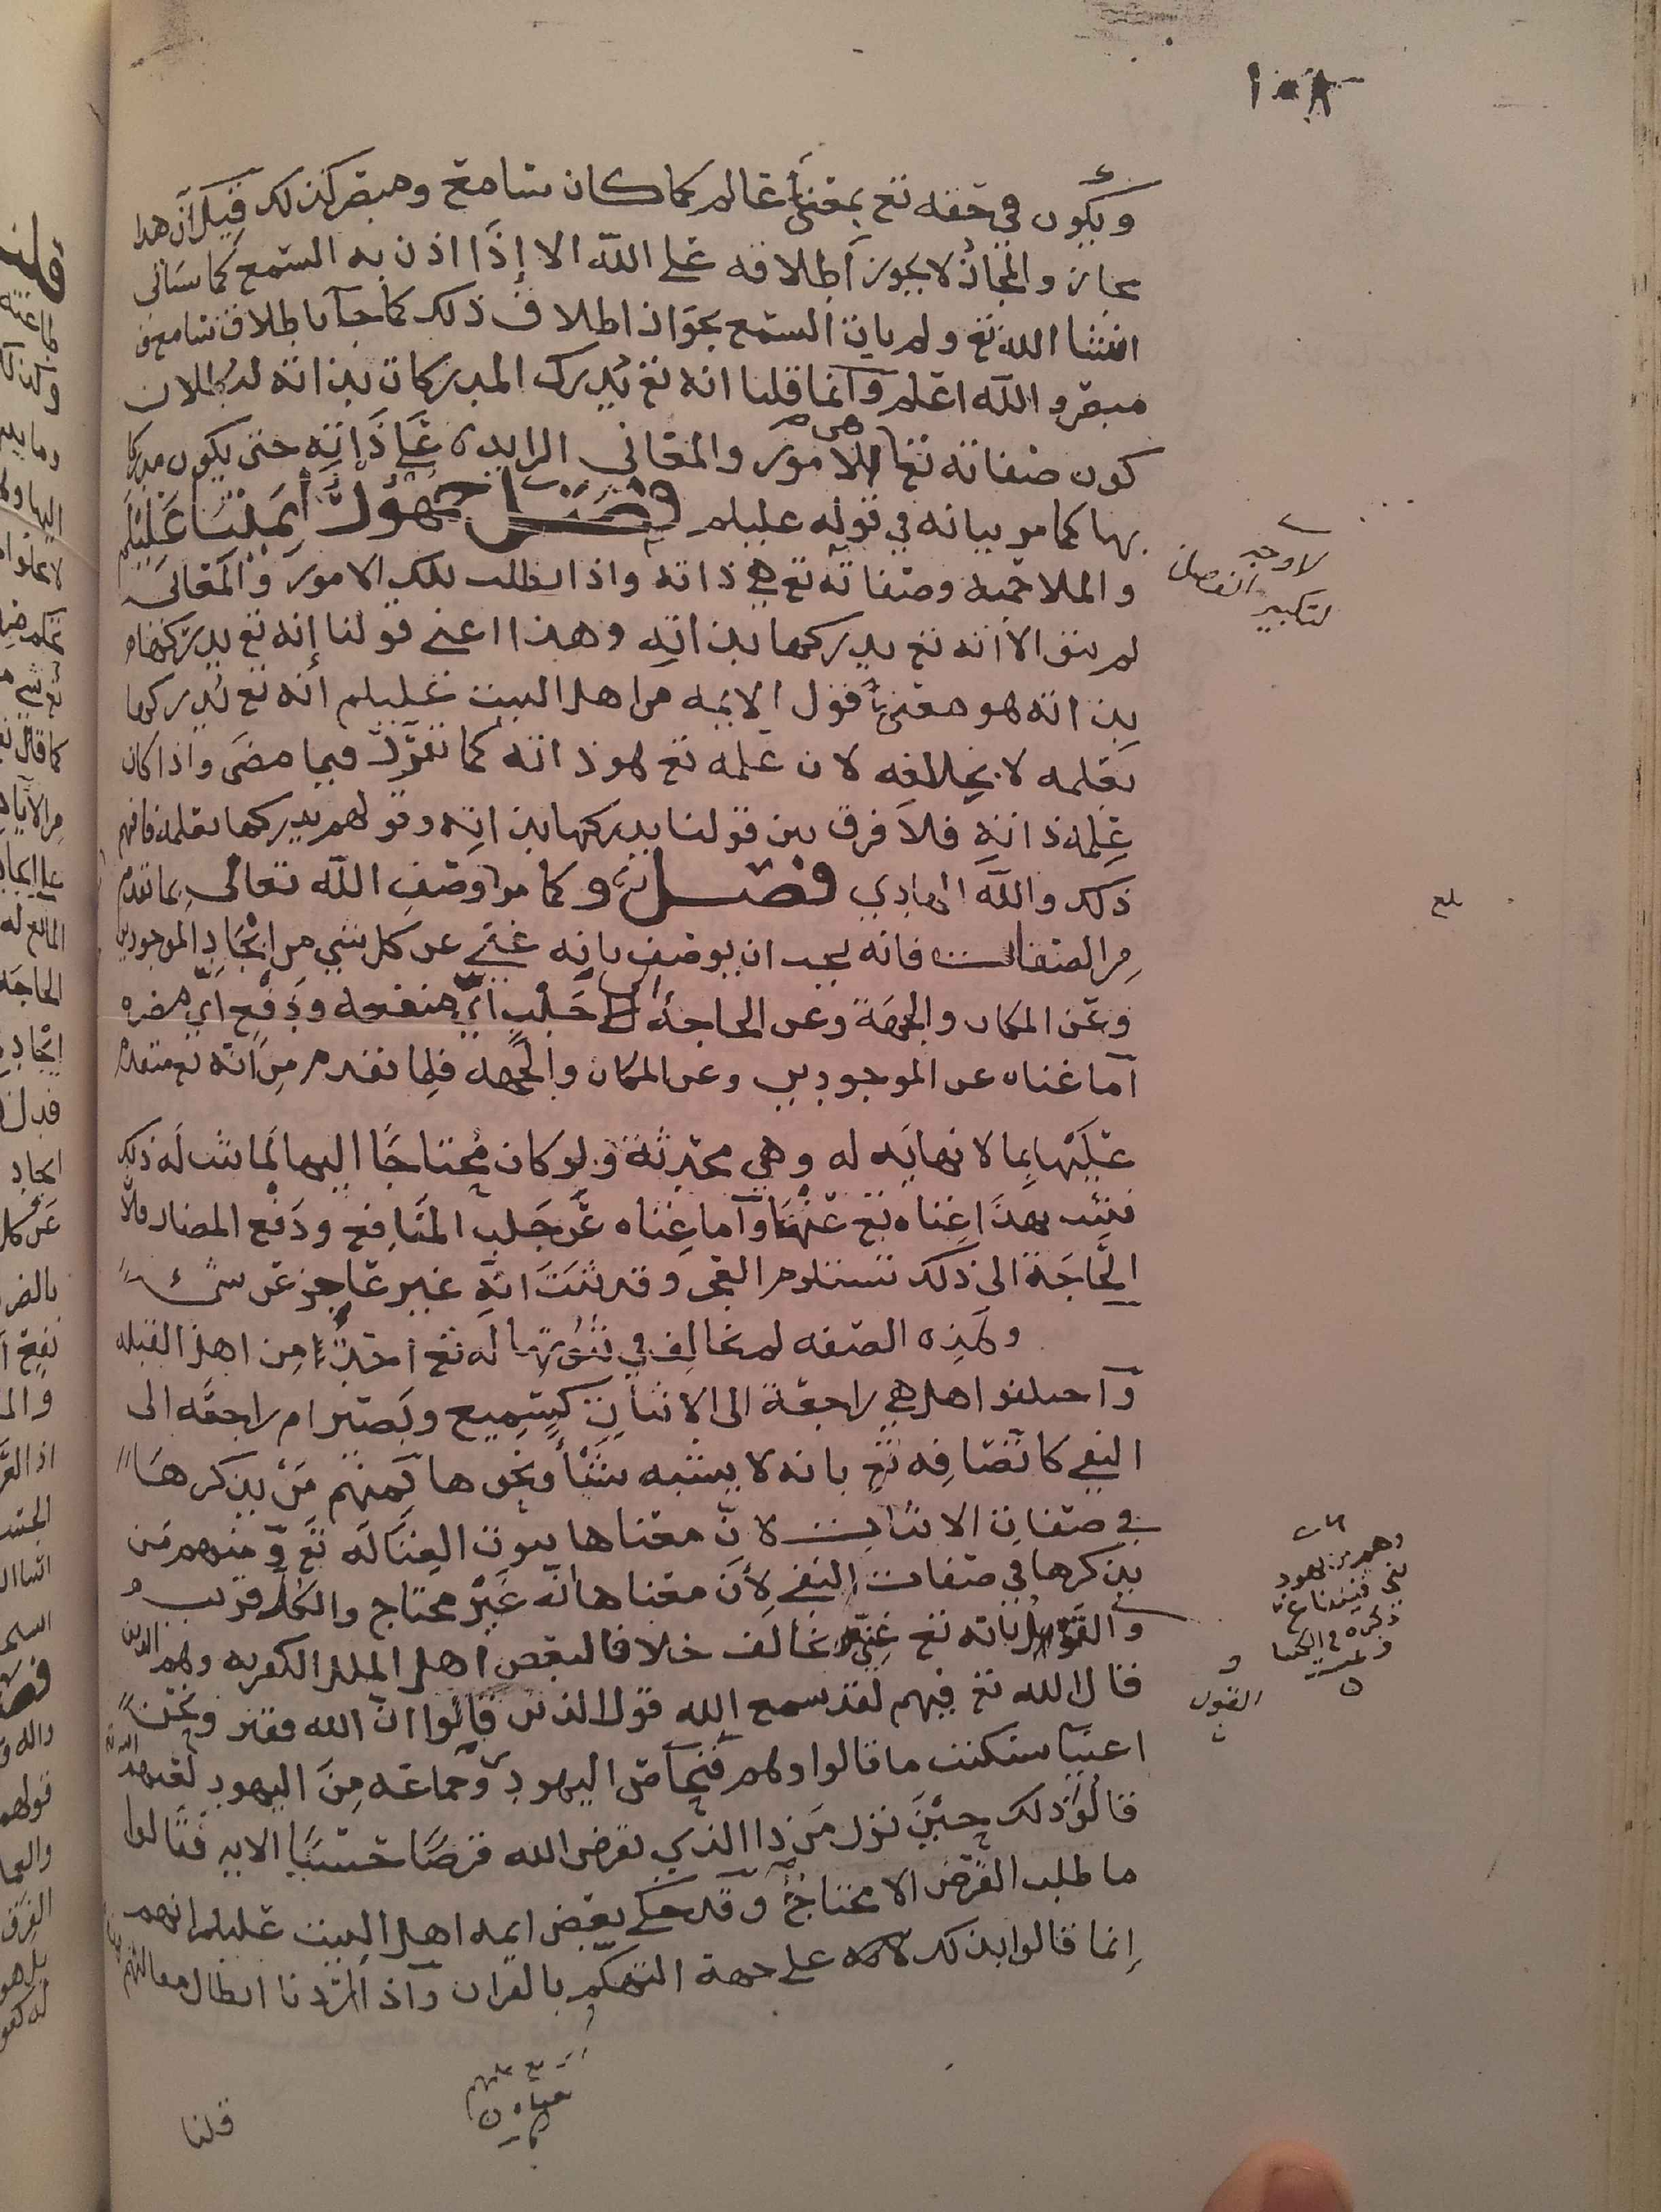 ١٠٨
ويكون في حقه تع بمعنى عالم كما كان سامع ومبصر كذلك قيل ان هذا
مجاز والمجاز لا يجوز اطلاقه على الله الا إذا اذن به السمع كما سياتي
انشا الله تع ولم يات السمع بجواز اطلاق ذلك كما جآ باطلاق سامع و
مبصر والله اعلم وانما قلنا انه تع يدرك المدركات بذاته لبطلان
كون صفاته تعا هي الامور والمعاني الزايدة على ذاته حتى يكون مدركا
بها كما مر بيانه في قوله عليلم فصل جمهور أيمتنا عليلم
والملاحميه وصفاته تع هي ذاته واذا بطلت تلك الامور والمعاني
لم يبق الا انه تع يدركها بذاته وهذا اعني قولنا إنه تع يدركها
بذاته هو معنى قول الايمه من اهل البيت عليلم انه تع يدركها
بعلمه لا بخلافه لان علمه تع هو ذاته كما تقرر فيما مضى واذا كان
علمه ذاته فلا فرق بين قولنا يدركها بذاته وقولهم يدركها بعلمه فافهم
ذلك والله الهادي فصل وكما مر وصف الله تعالى بما تقدم
من الصفات فانه يجب ان يوصف بانه غني عن كل شي من ايجاد الموجودين
وعن المكان والجهة وعن الحاجة الى جلب اي منفعه ودفع اي مضره
أما غناه عن الموجودين وعن المكان والجهه فلما تقدم من انه تع متقدم
عليها بما لا نهايه له وهي محدثة ولو كان محتاجا اليها لما ثبت له ذلك
فثبت بهذا غناه تع عنها وأما غناه عن جلب المنافع ودفع المضار فلأن
الحاجة الى ذلك تستلزم العجز وقد ثبت انه غير عاجز عن شيء
وهذه الصفه لم يخالف في ثبوتها له تع احد من اهل القبله
وآختلفوا هل هي راجعة الى الاثبات كسميع وبصير ام راجعه الى
النفي كاتصافه تع بانه لا يشبه شيئا ونحوها فمنهم من يذكرها
في صفات الاثبات لان معناها ثبوت الغنا له تع ومنهم من
يذكرها في صفات النفي لأن معناها انه غير محتاج والكل قريب
والقول بانه تع غني خالف خلافا لبعض اهل الملل الكفريه وهم الذين
قال الله تع فيهم لقد سمع الله قول الذين قالوا ان الله فقير ونحن
اغنيا سنكتب ما قالوا وهم فنحاص اليهودي وجماعه من اليهود لعنهم الله
قالوا ذلك حين نزل من ذا الذي يقرض الله قرضا حسنا الايه فقالوا
ما طلب القرض الا محتاج وقد حكى بعض ايمه اهل البيت عليلم انهم
إنما قالوا بذلك على جهة التهكم بالقران واذا اردنا ابطال مقالتهم
قلنا
لا وجه
لتكبير الفصل
بلغ
وهم من يهود
بني قينقاع
ذكره في
القول